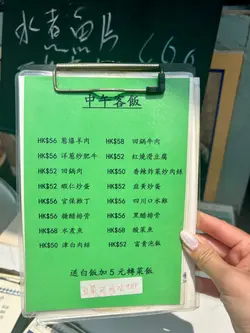 水煮魚片
中午客飯
HK$56 蔥爆羊肉 HK$58 回鍋牛肉
HK$56 洋蔥炒肥牛 HK$52 紅燒滑豆腐
HK$52 回鍋肉 HK$50 香辣炸菜炒肉絲
HK$52 蝦仁炒蛋 HK$52 韭黃炒蛋
HK$56 宮保雞丁 HK$56 四川口水雞
HK$56 糖醋排骨 HK$56 黑醋排骨
HK$68 水煮魚 HK$68 酸菜魚
HK$50 津白肉絲 HK$52 富貴泡飯
送白飯加5元轉菜飯